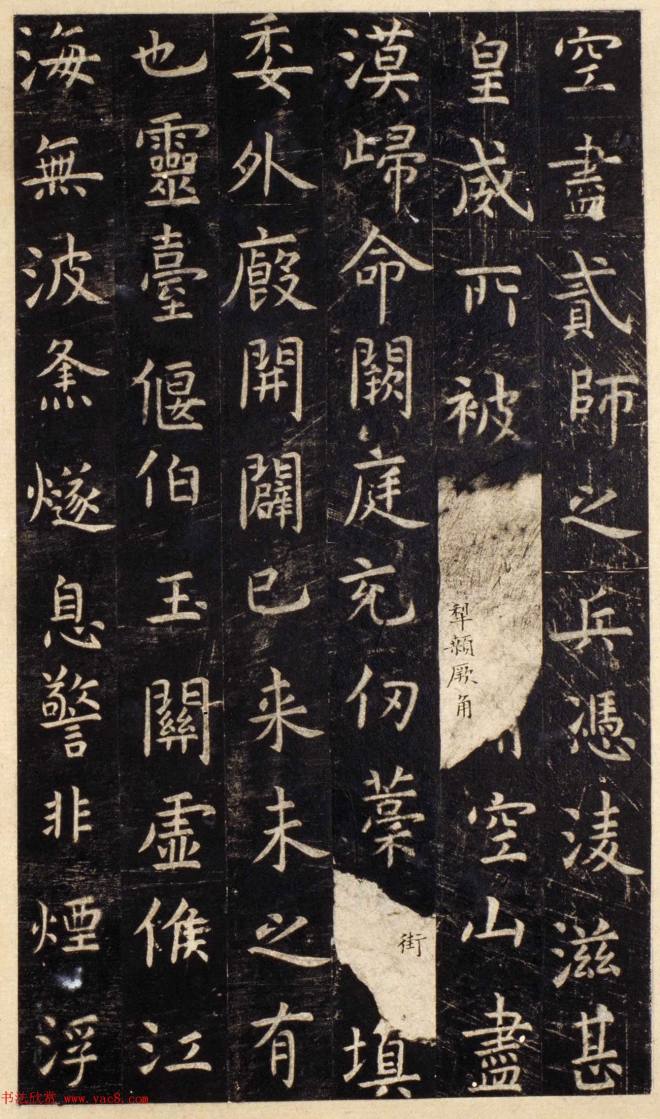 空盡貳師之兵憑淩滋甚
皇威所被犁顙厥角空山盡
漠歸命闕庭充仞藁街填
委外廄開闢已来未之有
也靈臺偃伯玉關虛候江
海無波烽燧息警非煙浮
书法欣赏 www.vac8.com